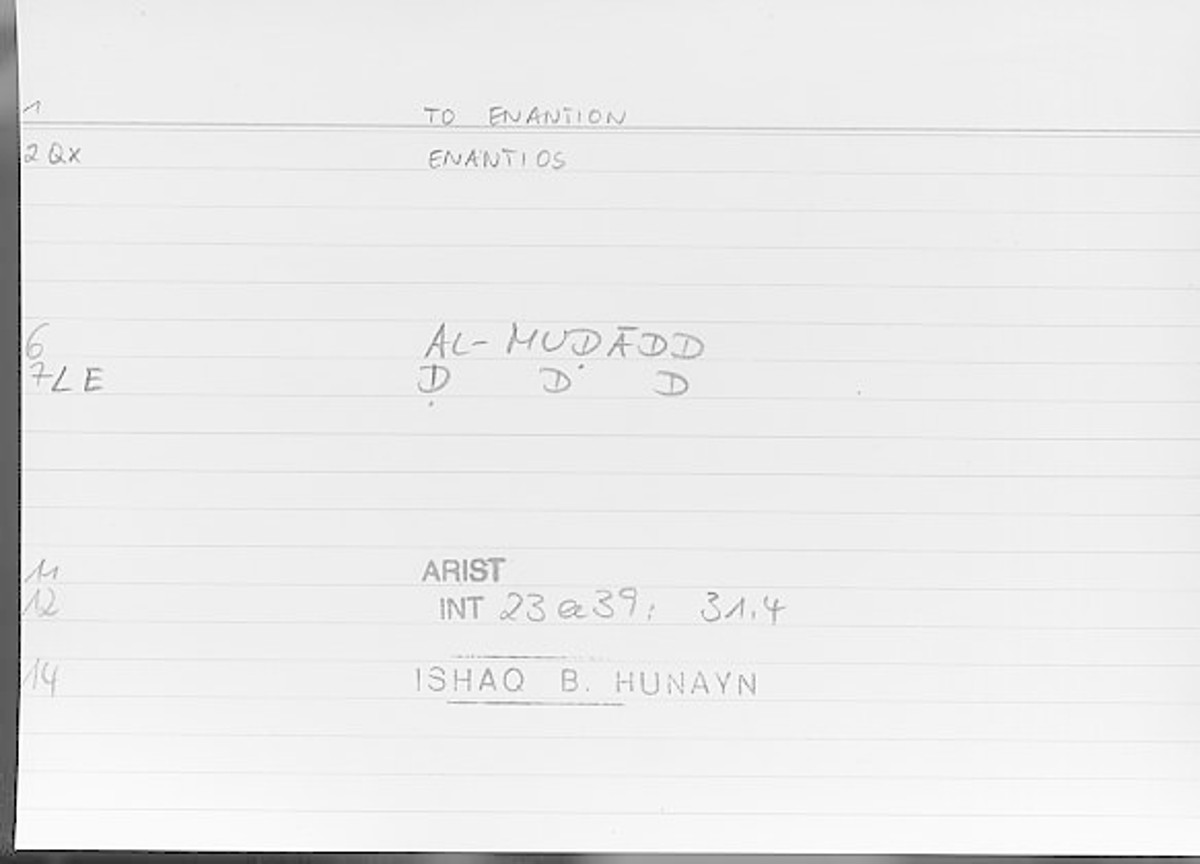 1 TO ENANTION
2 QX ENANTIOS
6 AL-MUḌĀDD
7 L E Ḍ D D
11 ARIST
12 INT 23a39; 31.4
14 ISHAQ B. HUNAYN